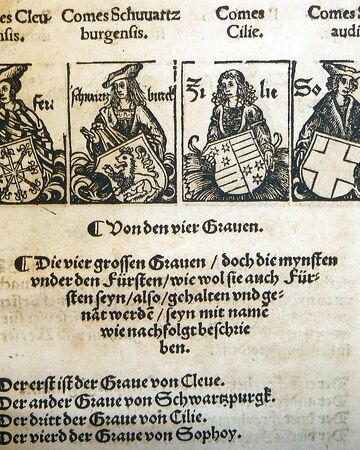 es Cleu Comes Schwartz Comes Comes S
nsis. burgensis. Cilie. audi
feri schwartz burck Zi lie So
¶ Von den vier Grauen.
¶ Die vier grossen Grauen / doch die mynsten
vnder den Fürsten / wie wol sie auch Für⸗
sten seyn / also / gehalten vnd ge⸗
nāt werdē / seyn mit name
wie nachfolgt beschrie
ben.
Der erst ist der Graue von Cleue.
Der ander Graue von Schwartzpurgk.
Der dritt der Graue von Cilie.
Der vierd der Graue von Sophoy.